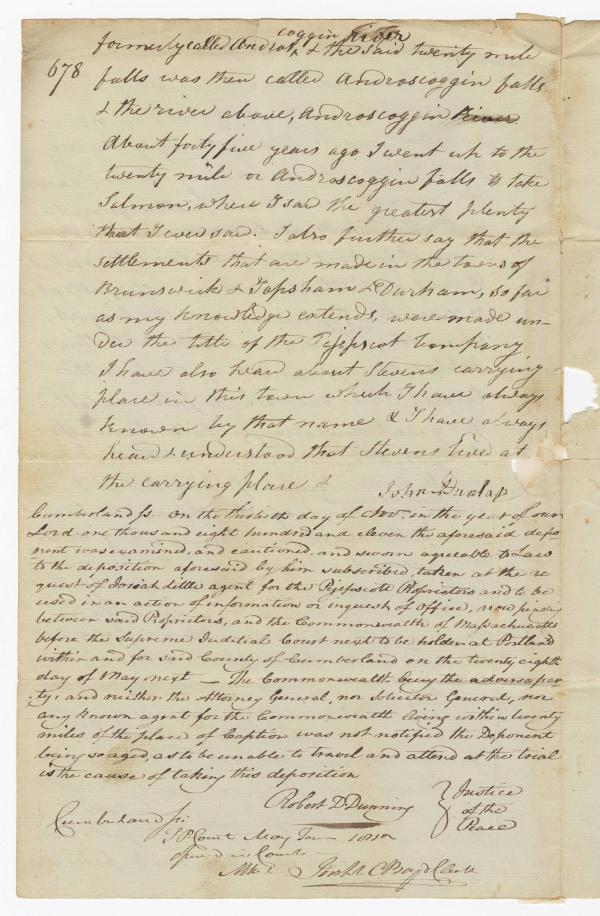 coggin River
formerly called Andros, & the said twenty mile
678
falls was then called Androscoggin falls
& the river above, Androscoggin River
About forty five years ago I went up to the
twenty mile or Androscoggin falls to take
Salmon, where I saw the greatest plenty
that I ever saw. I also further say that the
settlements that are made in the towns of
Brunswick & Topsham & Durham, so far
as my knowledge extends, were made un-
der the title of the Pejepscot Company
I have also heard about Stevens carrying
place in this town which I have always
known by that name & I have always
heard & understood that Stevens lived at
the carrying place &
John Dunlap
Cumberland ss. On the thirtieth day of Nov. in the year of our
Lord one thousand eight hundred and eleven the aforesaid depo
nent was examined, and cautioned, and sworn agreeable to Law
to the deposition aforesaid by him subscribed, taken at the re
quest of Josiah Little agent for the Pejepscote Proprietors and to be
used in an action of information or inquest of office, now pending
between said Proprietors, and the Commonwealth of Massachusetts
before the Supreme Juditial Court next to be holden at Portland
within and for said County of Cumberland on the twenty eighth
day of May next — The Commonwealth being the adverse par
ty; and neither the Attorney General, nor Solicitor General, nor
any known agent for the Commonwealth living within twenty
miles of the place of Caption was not notified the Deponent
being so aged, as to be unable to travel and attend at the trial
is the cause of taking this deposition
Robert D. Dunning
Justice
of the
Peace
Cumberland ss.
S J Court May Term 1812
opened in Court
Att.
C Boyd Clerk